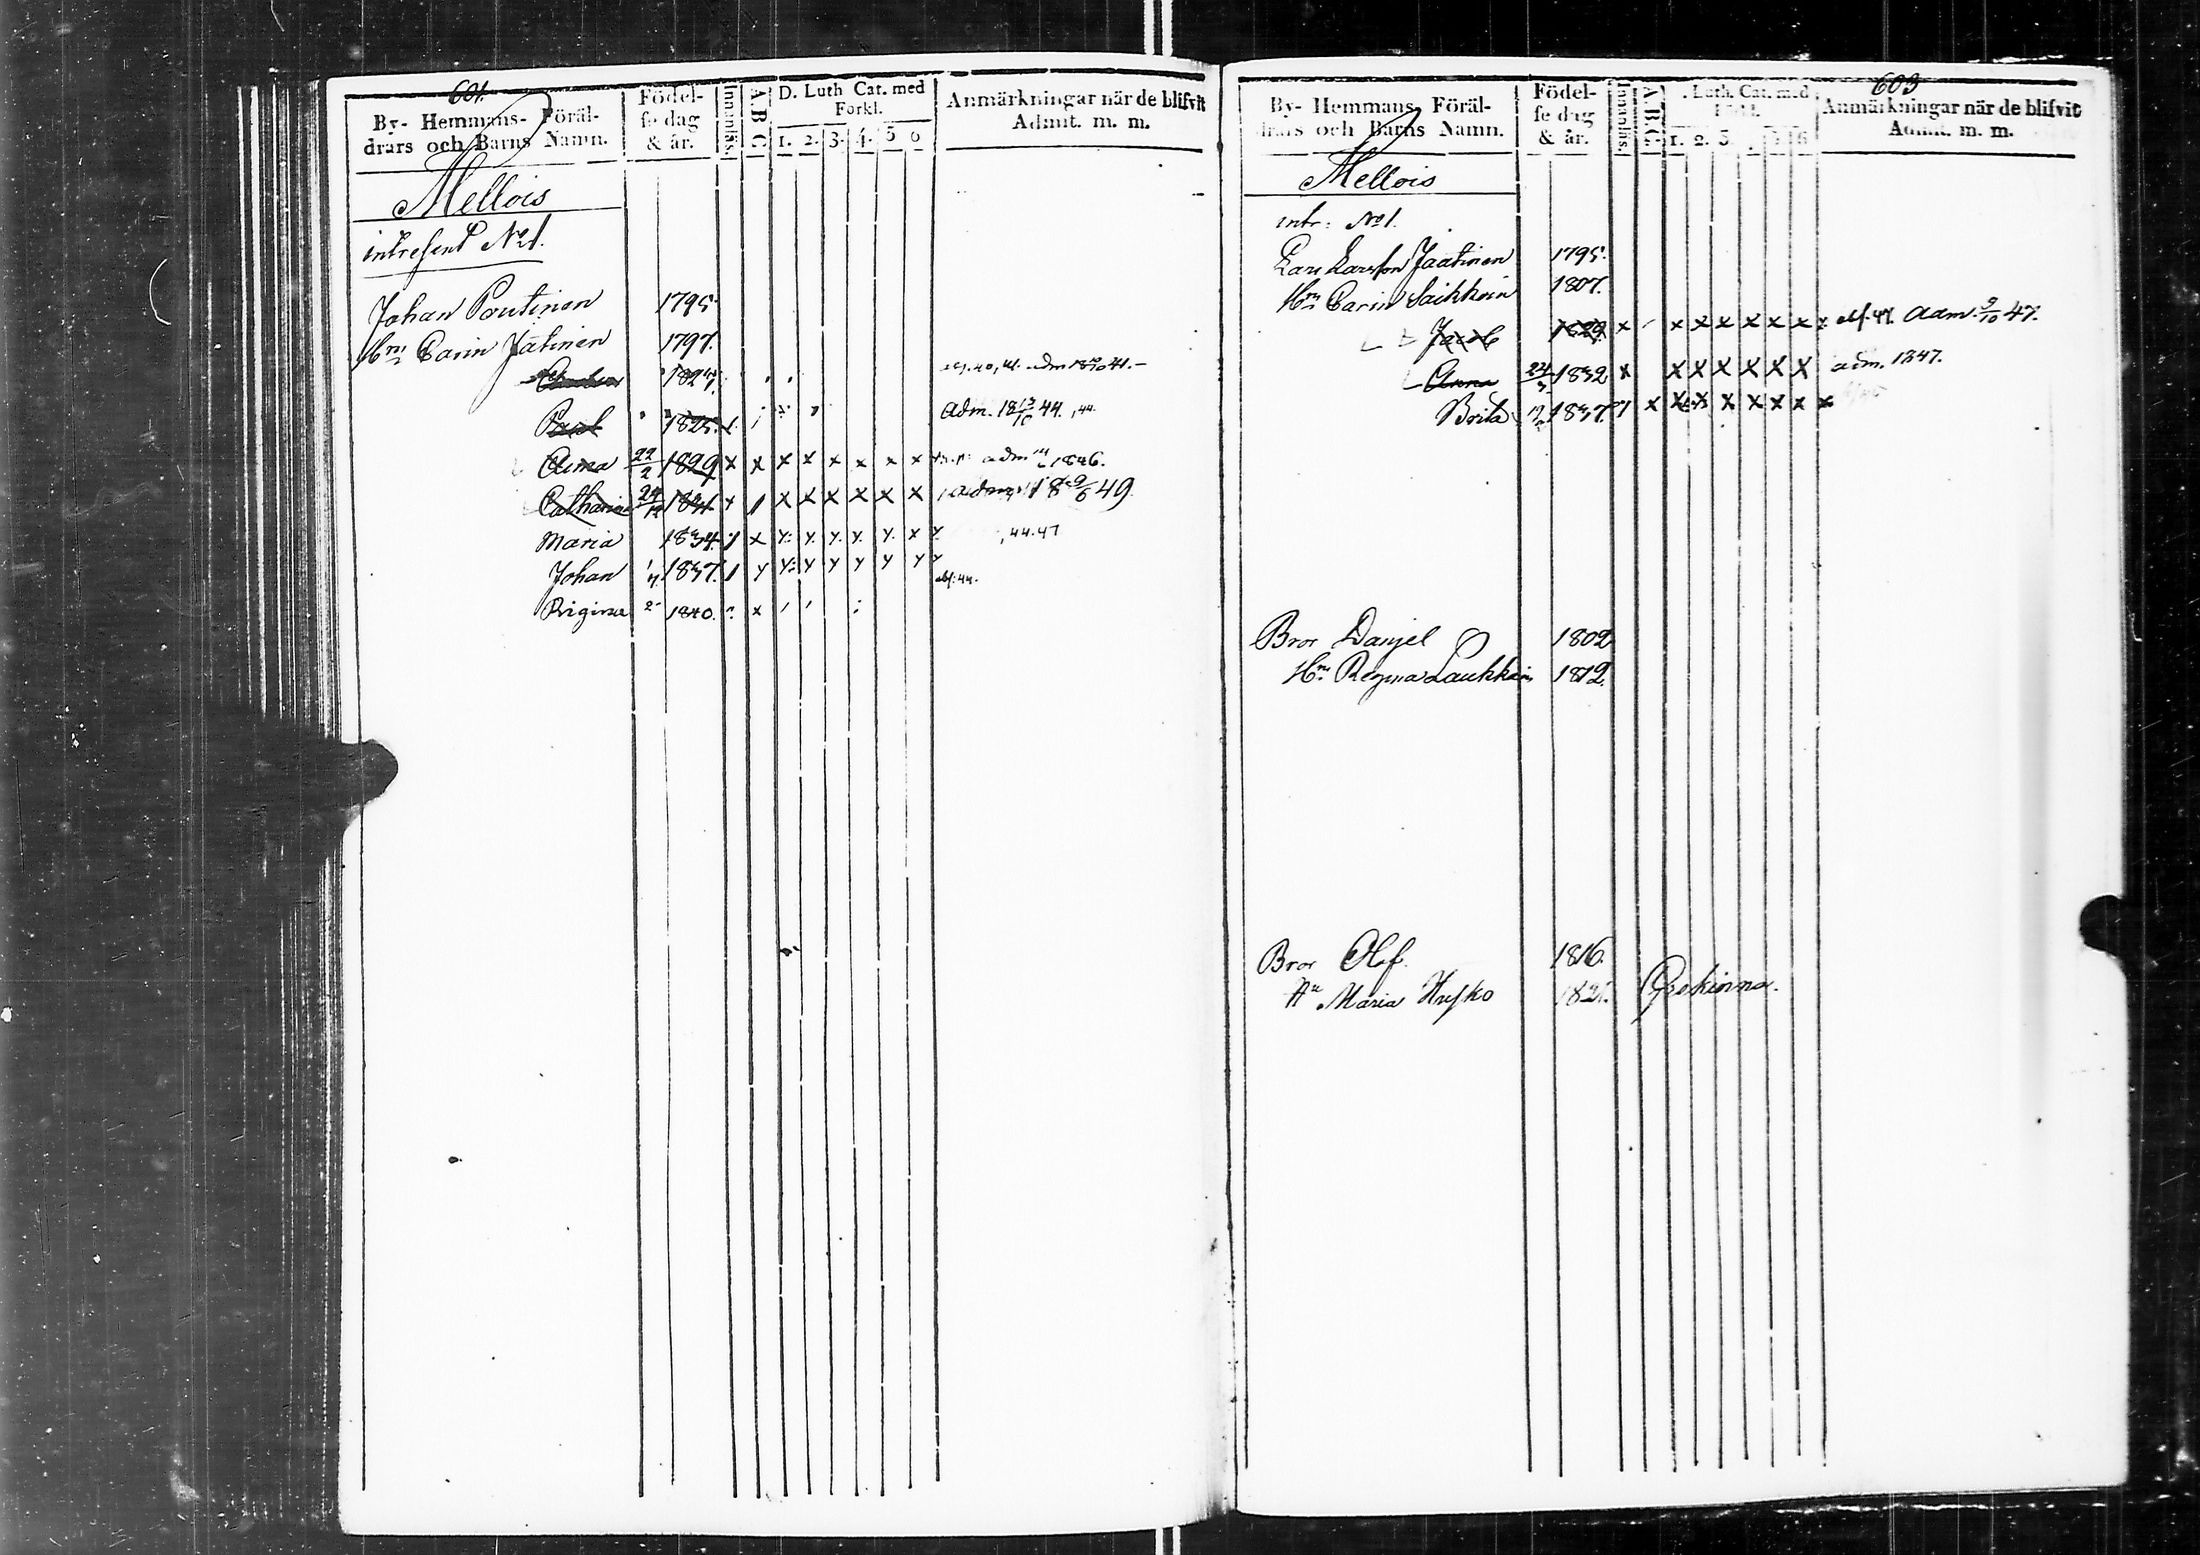 601.
By- Hemmans- Föräl-
drars och Barns Namn.
Födel-
se dag
& år.
Innanläs
A.B.C
D. Luth Cat. med
Forkl.
1. 2. 3. 4. 5 6
Anmärkningar när de blifvit
Admit. m. m.
Mellois
intresent No 1.
Johan Poutinen 1795.
Hru Carin Jätinen 1797.
Paul 1825. Adm. 18 13/10 44. , 44.
Anna 22/2 1829 x x x x x x x x adm 1846.
Catharina 1831 x x x x x x adm. 18 9/6 49
Maria 1834. , 44. 47
Johan 1837. 44.
Rigina 1840.
603
By- Hemmans- Föräl-
drars och Barns Namn.
Födel-
se dag
& år.
Innanläs
A.B.C.
. Luth. Cat. med
1. 2. 3. 6
Anmärkningar när de blifvit
Admit. m. m.
Mellois
intr: No 1.
Lars Larsson Jaatinen 1795.
Hru Carin Saikkoin 1807.
Jacob 1829. x x x x x x x Adm. 9/10 47.
Anna 1832 x x x x x x x adm. 1847.
Brita 1837.
Bror Danjel 1802
Hru Regina Laukkain 1812.
Bror Olof. 1816.
Hu Maria Husko